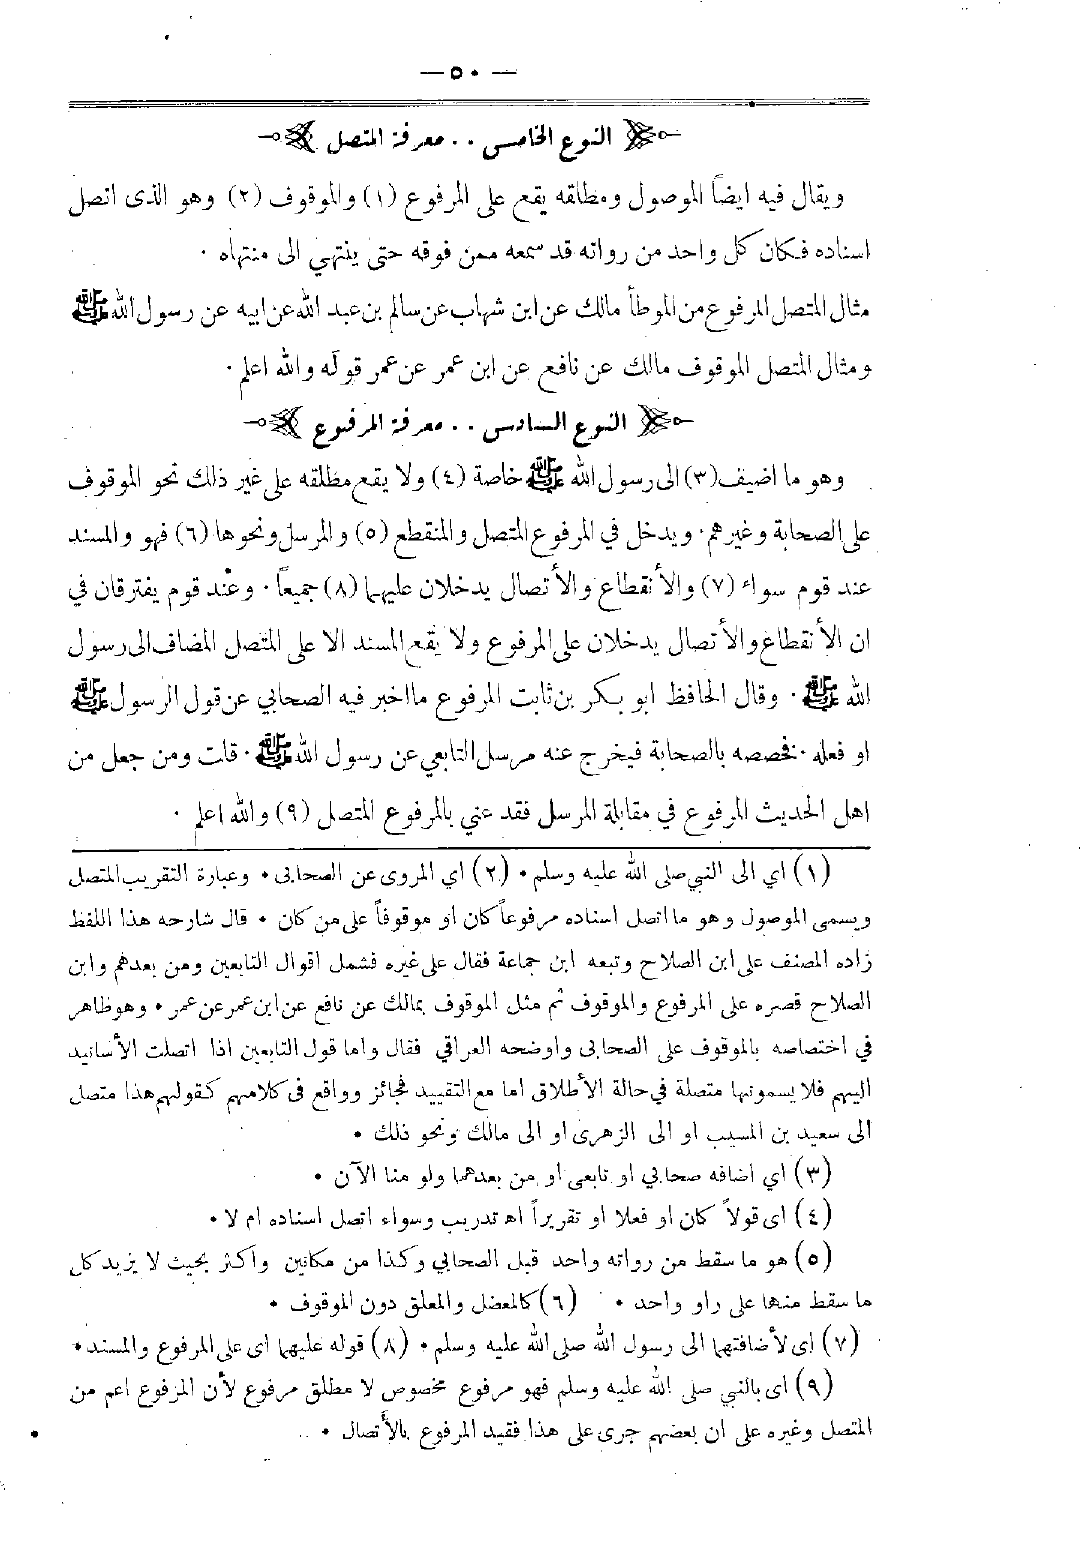 — ٥٠ —
النوع الخامس . . معرفة المتصل
ويقال فيه ايضاً الموصول ومطلقه يقع على المرفوع (١) والموقوف (٢) وهو الذى اتصل
اسناده فكان كل واحد من رواته قد سمعه ممن فوقه حتى ينتهي الى منتهاه ·
مثال المتصل المرفوع من الموطأ مالك عن ابن شهاب عن سالم بن عبد الله عن ابيه عن رسول الله ﷺ
ومثال المتصل الموقوف مالك عن نافع عن ابن عمر عن عمر قوله والله اعلم ·
النوع السادس . . معرفة المرفوع
وهو ما اضيف (٣) الى رسول الله ﷺ خاصة (٤) ولا يقع مطلقه على غير ذلك نحو الموقوف
على الصحابة وغيرهم · ويدخل في المرفوع المتصل والمنقطع (٥) والمرسل ونحوها (٦) فهو والمسند
عند قوم سواء (٧) والأنقطاع والأتصال يدخلان عليهما (٨) جميعاً · وعند قوم يفترقان في
ان الأنقطاع والأتصال يدخلان على المرفوع ولا يقع المسند الا على المتصل المضاف الى رسول
الله ﷺ · وقال الحافظ ابو بكر بن ثابت المرفوع ما اخبر فيه الصحابي عن قول الرسول ﷺ
او فعله · فخصصه بالصحابة فيخرج عنه مرسل التابعي عن رسول الله ﷺ · قلت ومن جعل من
اهل الحديث المرفوع في مقابلة المرسل فقد عني بالمرفوع المتصل (٩) والله اعلم ·
(١) اي الى النبي صلى الله عليه وسلم • (٢) اي المروى عن الصحابى • وعبارة التقريب المتصل
ويسمى الموصول وهو ما اتصل اسناده مرفوعاً كان او موقوفاً على من كان • قال شارحه هذا اللفظ
زاده المصنف على ابن الصلاح وتبعه ابن جماعة فقال على غيره فشمل اقوال التابعين ومن بعدهم وابن
الصلاح قصره على المرفوع والموقوف ثم مثل الموقوف بمالك عن نافع عن ابن عمر عن عمر • وهو ظاهر
في اختصاصه بالموقوف على الصحابى واوضحه العراقي فقال واما قول التابعين اذا اتصلت الأسانيد
اليهم فلا يسمونها متصلة في حالة الأطلاق اما مع التقييد فجائز وواقع فى كلامهم كقولهم هذا متصل
الى سعيد بن المسيب او الى الزهرى او الى مالك ونحو ذلك •
(٣) اي اضافه صحابي او تابعى او من بعدهما ولو منا الآن •
(٤) اى قولاً كان او فعلا او تقريراً اه تدريب وسواء اتصل اسناده ام لا •
(٥) هو ما سقط من رواته واحد قبل الصحابي وكذا من مكانين واكثر بحيث لا يزيد كل
ما سقط منها على راو واحد • (٦) كالمعضل والمعلق دون الموقوف •
(٧) اى لأضافتهما الى رسول الله صلى الله عليه وسلم • (٨) قوله عليهما اى على المرفوع والمسند •
(٩) اى بالنبي صلى الله عليه وسلم فهو مرفوع مخصوص لا مطلق مرفوع لأن المرفوع اعم من
المتصل وغيره على ان بعضهم جرى على هذا فقيد المرفوع بالأتصال •